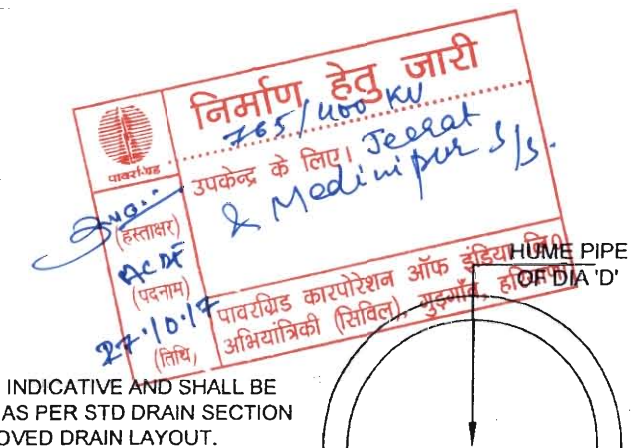 निर्माण हेतु जारी
765/400 KV
पावरग्रिड
उपकेन्द्र के लिए। Jeerat
& Medinipur S/S.
(हस्ताक्षर)
(पदनाम)
27.10.17
(तिथि,
पावरग्रिड कारपोरेशन ऑफ इंडिया लि०
अभियांत्रिकी (सिविल), गुड़गाँव,
HUME PIPE
OF DIA 'D'
INDICATIVE AND SHALL BE
AS PER STD DRAIN SECTION
OVED DRAIN LAYOUT.